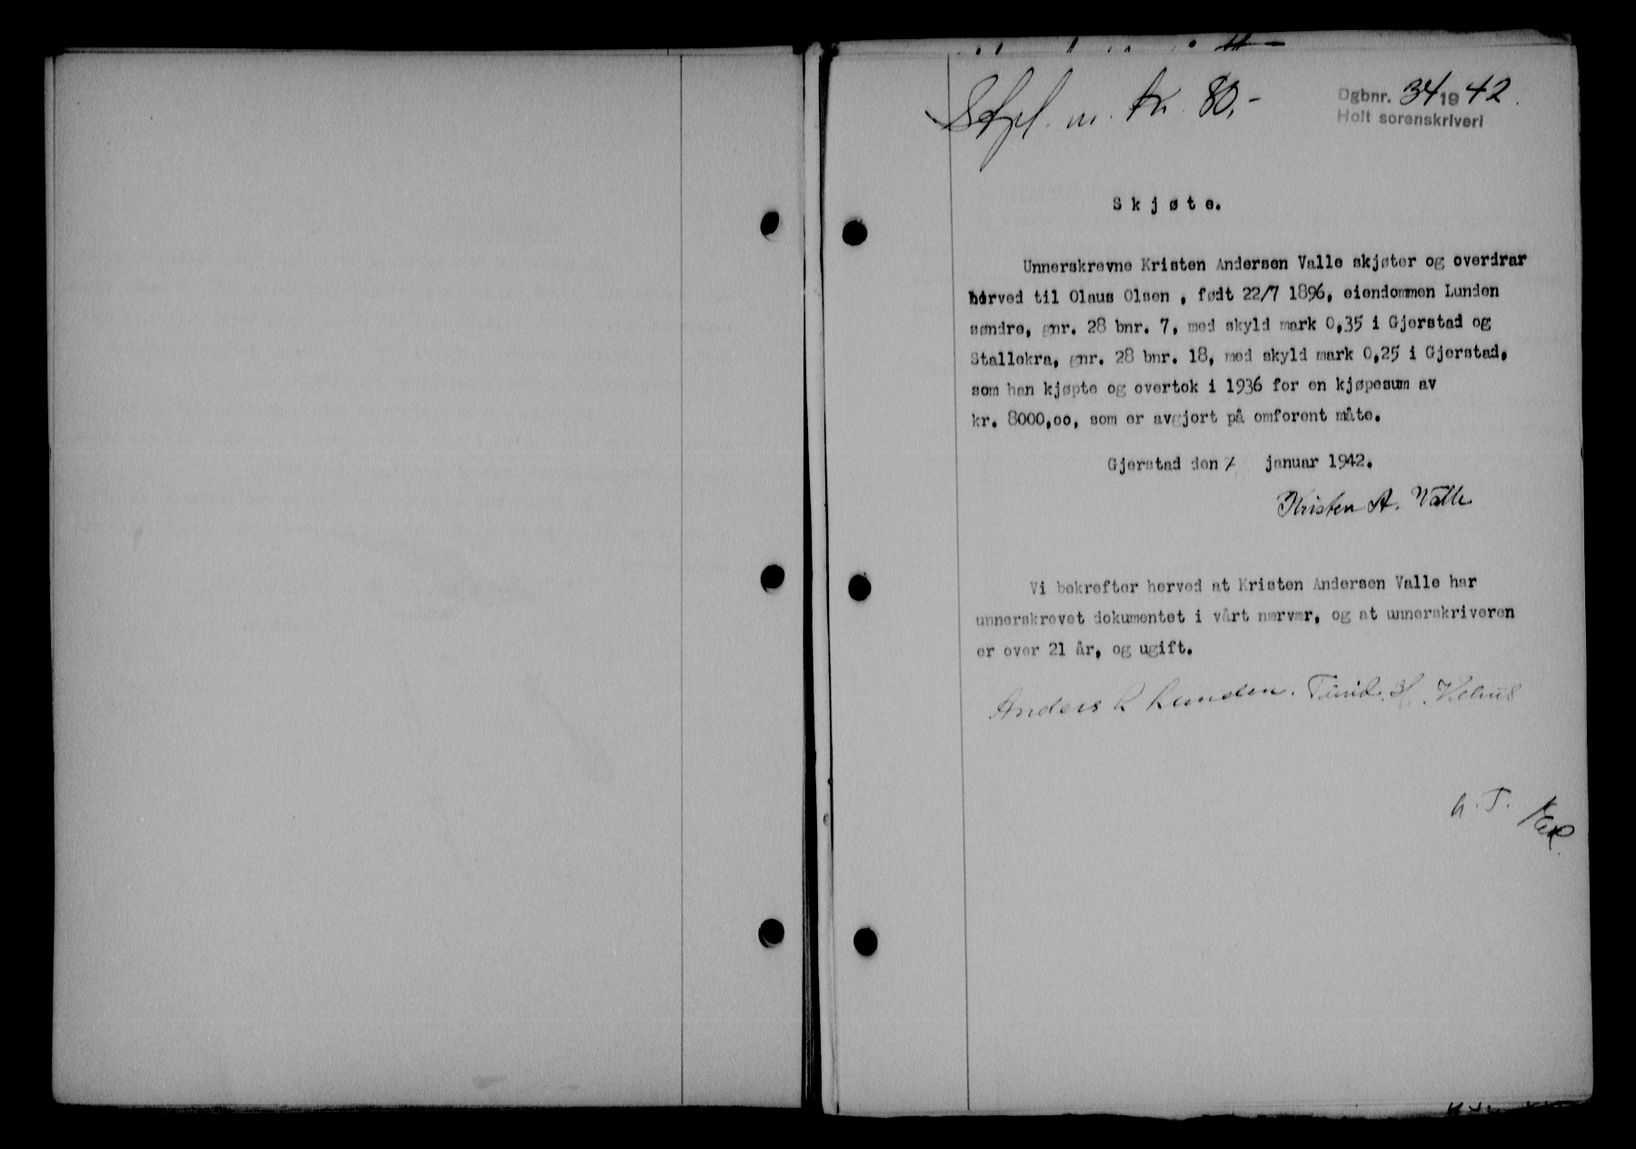 Stpl. m. kr. 80,-
Dgbnr. 34 1942.
Holt sorenskriveri
Skjøte.
Unnerskrevne Kristen Andersen Valle skjøter og overdrar
herved til Olaus Olsen , født 22/7 1896, eiendommen Lunden
søndre, gnr. 28 bnr. 7, med skyld mark 0,35 i Gjerstad og
Stallekra, gnr. 28 bnr. 18, med skyld mark 0,25 i Gjerstad,
som han kjøpte og overtok i 1936 for en kjøpesum av
kr. 8000,oo, som er avgjort på omforent måte.
Gjerstad den 7 januar 1942.
Kristen A. Valle
Vi bekrefter herved at Kristen Andersen Valle har
unnerskrevet dokumentet i vårt nærvær, og at unnerskriveren
er over 21 år, og ugift.
Anders Lunden. H.